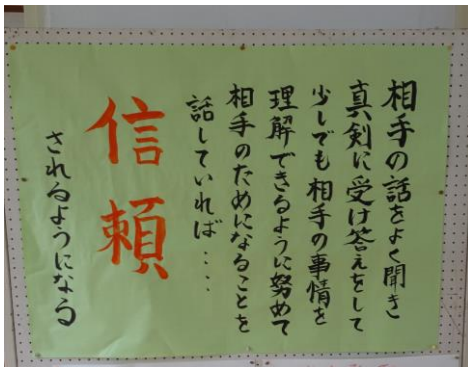 相手の話をよく聞き
真剣に受け答えをして
少しでも相手の事情を
理解できるように努めて
相手のためになることを
話していれば・・・・
信頼
されるようになる